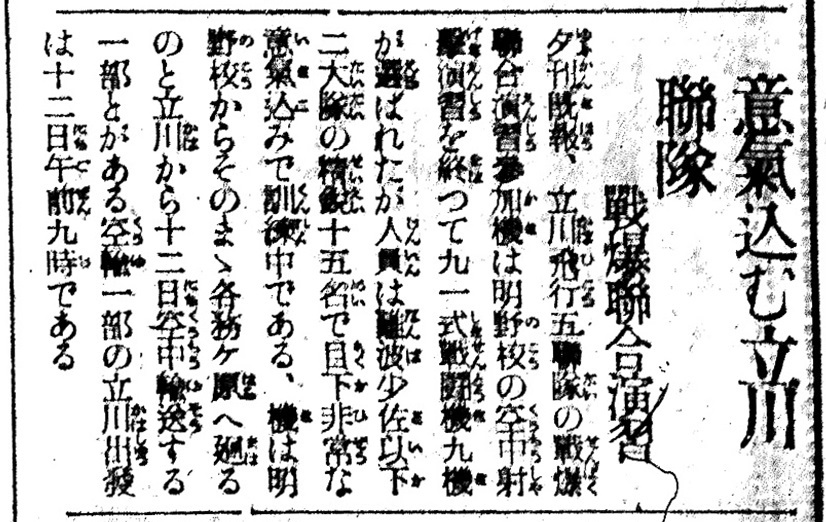 意氣込む立川
聯隊
戰爆聯合演習
夕刊既報、立川飛行五聯隊の戰爆
聯合演習參加機は明野校の空中射
擊演習を終つて九一式戰鬪機九機
が選ばれたが人員は難波少佐以下
二大隊の精銳十五名で目下非常な
意氣込みで訓練中である、機は明
野校からそのまゝ各務ケ原へ廻る
のと立川から十二日空中輸送する
一部とがある空輸一部の立川出發
は十二日午前九時である